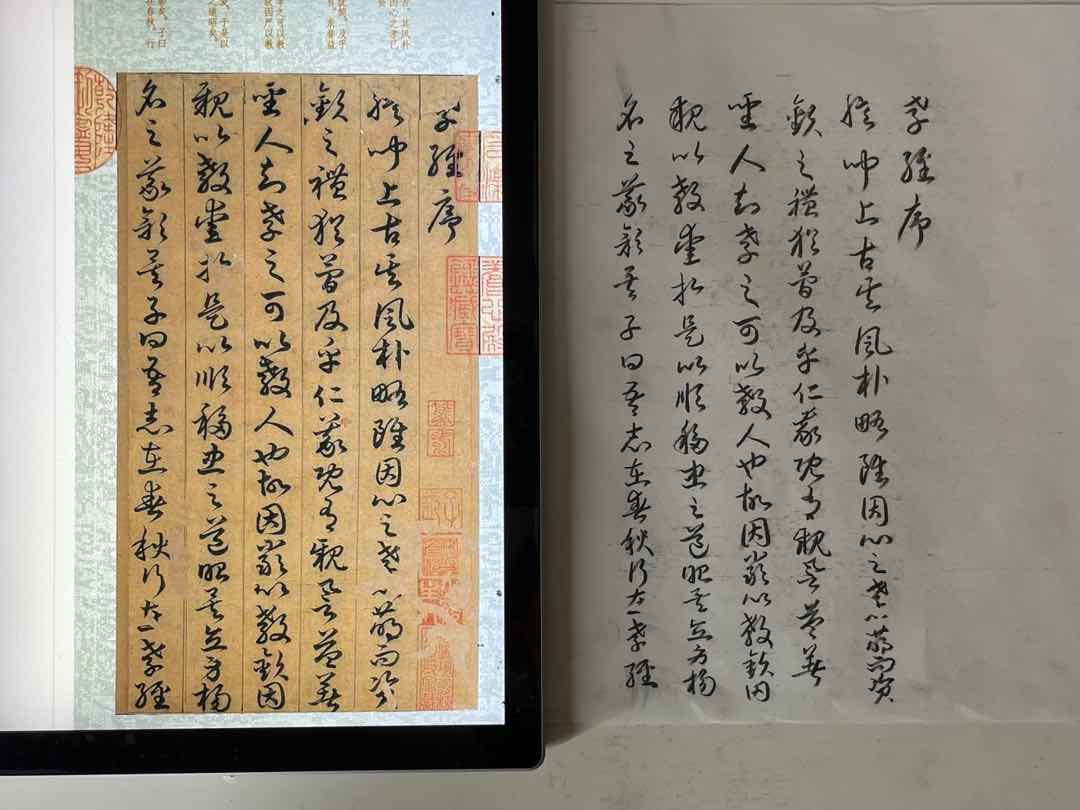 古，其风朴
因心之孝已
及乎
亲誉益
孝之可以教
故因严以教
于是以
子曰
在春秋，行
孝經序
朕聞上古其風朴略雖因心之孝已萌而資
敬之禮猶簡及乎仁義既有親譽益著
聖人知孝之可以教人也故因嚴以教敬因
親以教愛於是以順移忠之道昭矣立身揚
名之義彰矣子曰吾志在春秋行在孝經
孝經序
朕聞上古其風朴略雖因心之孝已萌而資
敬之禮猶簡及乎仁義既有親譽益著
聖人知孝之可以教人也故因嚴以教敬因
親以教愛於是以順移忠之道昭矣立身揚
名之義彰矣子曰吾志在春秋行在孝經